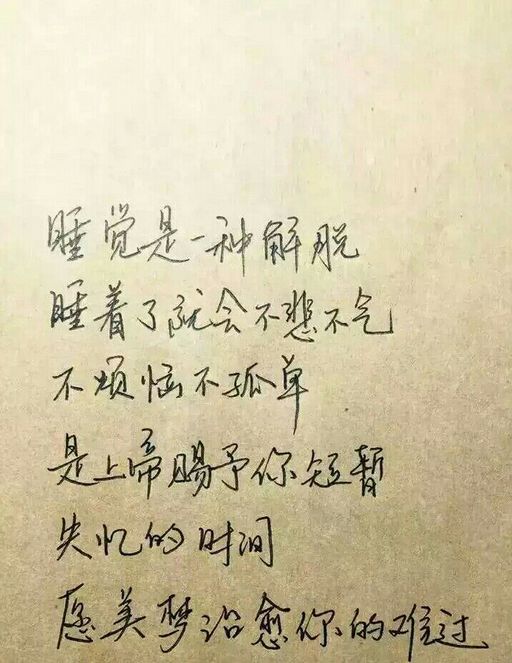 睡觉是一种解脱
睡着了就会不悲不气
不烦恼不孤单
是上帝赐予你短暂
失忆的时间
愿美梦治愈你的难过